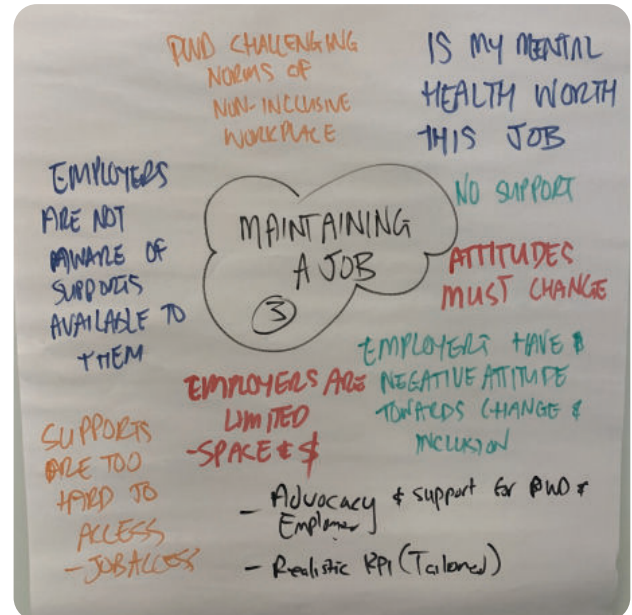 PWD CHALLENGING
NORMS OF
NON-INCLUSIVE
WORKPLACE
IS MY MENTAL
HEALTH WORTH
THIS JOB
EMPLOYERS
ARE NOT
AWARE OF
SUPPORTS
AVAILABLE TO
THEM
MAINTAINING
A JOB
3
NO SUPPORT
ATTITUDES
MUST CHANGE
EMPLOYERS HAVE
NEGATIVE ATTITUDE
TOWARDS CHANGE &
INCLUSION
EMPLOYERS ARE
LIMITED
- SPACE & $
SUPPORTS
ARE TOO
HARD TO
ACCESS
- JOBACCESS
- Advocacy & support for PWD &
Employer
- Realistic KPI (Tailored)